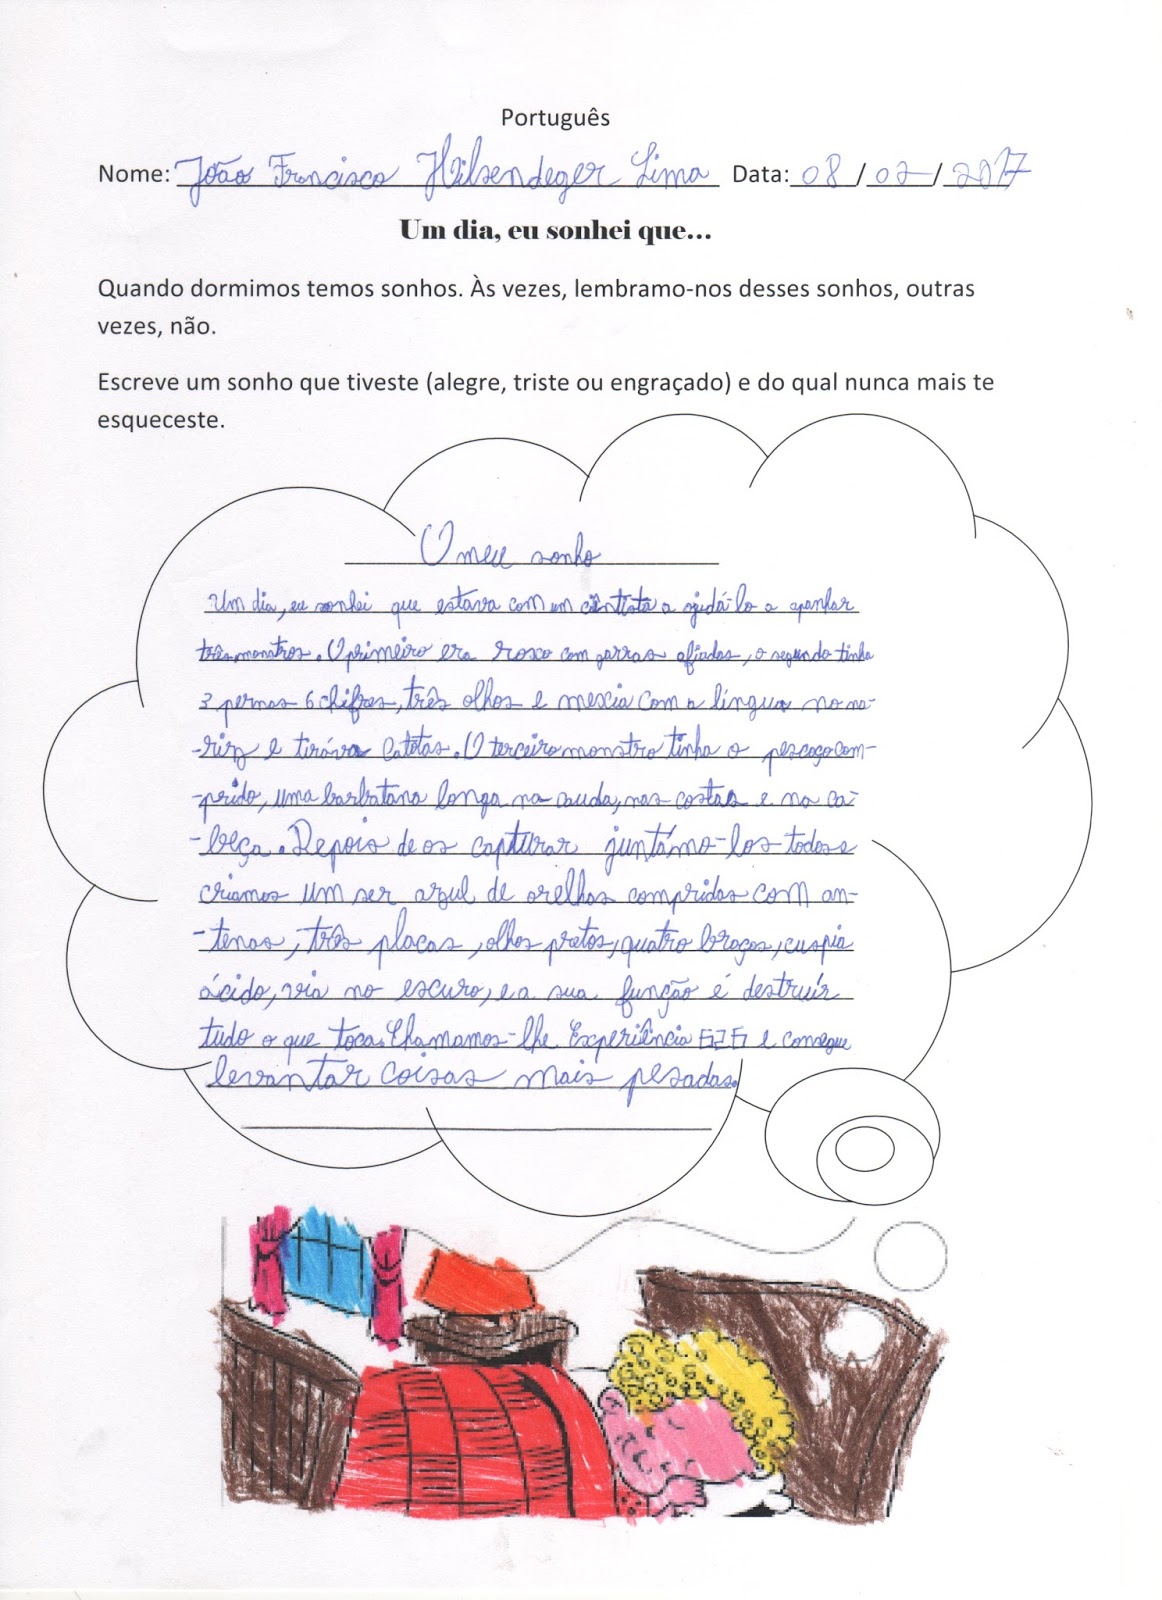 Português
Nome: João Francisco Hilsendeger Lima Data: 08/02/2017
Um dia, eu sonhei que...
Quando dormimos temos sonhos. Às vezes, lembramo-nos desses sonhos, outras
vezes, não.
Escreve um sonho que tiveste (alegre, triste ou engraçado) e do qual nunca mais te
esqueceste.
O meu sonho
Um dia, eu sonhei que estava com um cientista a ajudá-lo a apanhar
três monstros. O primeiro era roxo com garras afiadas, o segundo tinha
3 pernas 6 chifres, três olhos e mexia com a língua no na-
-riz e tirava catotas. O terceiro monstro tinha o pescoço com-
-prido, uma barbatana longa na cauda, nas costas e na ca-
-beça. Depois de os capturar juntámo-los todos e
criamos um ser azul de orelhas compridas com an-
-tenas, três placas, olhos pretos, quatro braços, cuspia
ácido, via no escuro, e a sua função é destruír
tudo o que toca. Chamamos-lhe Experiência 626 e consegue
levantar coisas mais pesadas.